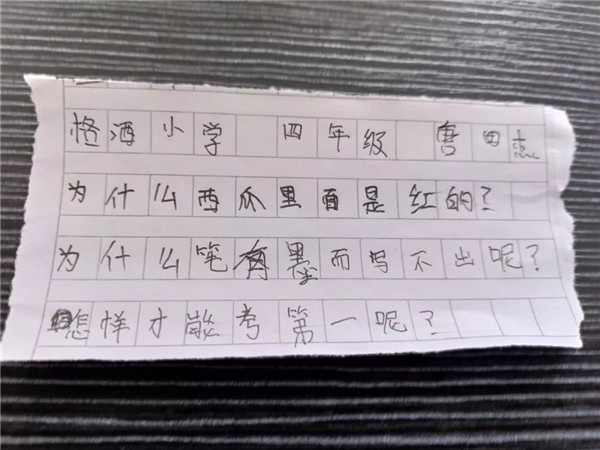 格酒小学 四年级 唐田
为什么西瓜里面是红的?
为什么笔有墨而写不出呢?
怎样才能考第一呢?